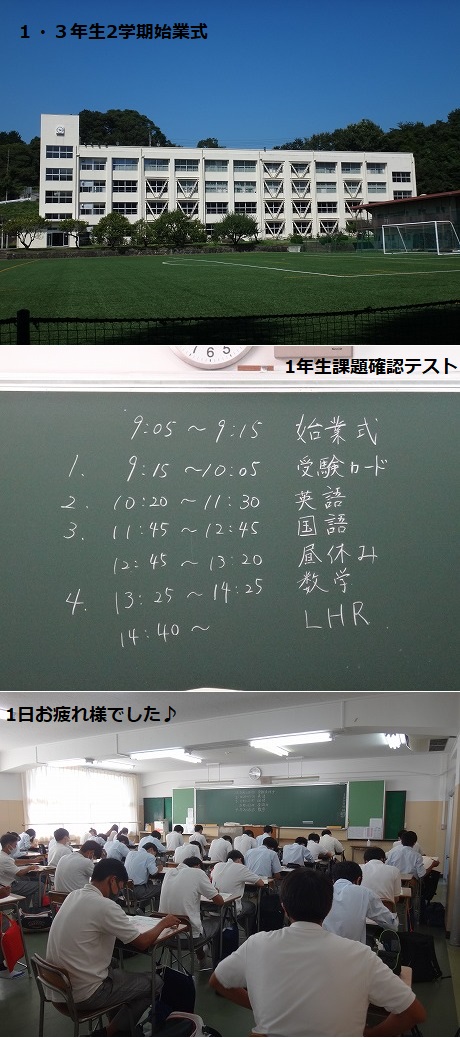 １・３年生2学期始業式
7 6 5
1年生課題確認テスト
9:05 ～ 9:15 始業式
1. 9:15 ～10:05 受験ロード
2. 10:20 ～ 11:30 英語
3. 11:45 ～ 12:45 国語
12:45 ～ 13:20 昼休み
4. 13:25 ～ 14:25 数学
14:40 ～ LHR
1日お疲れ様でした♪